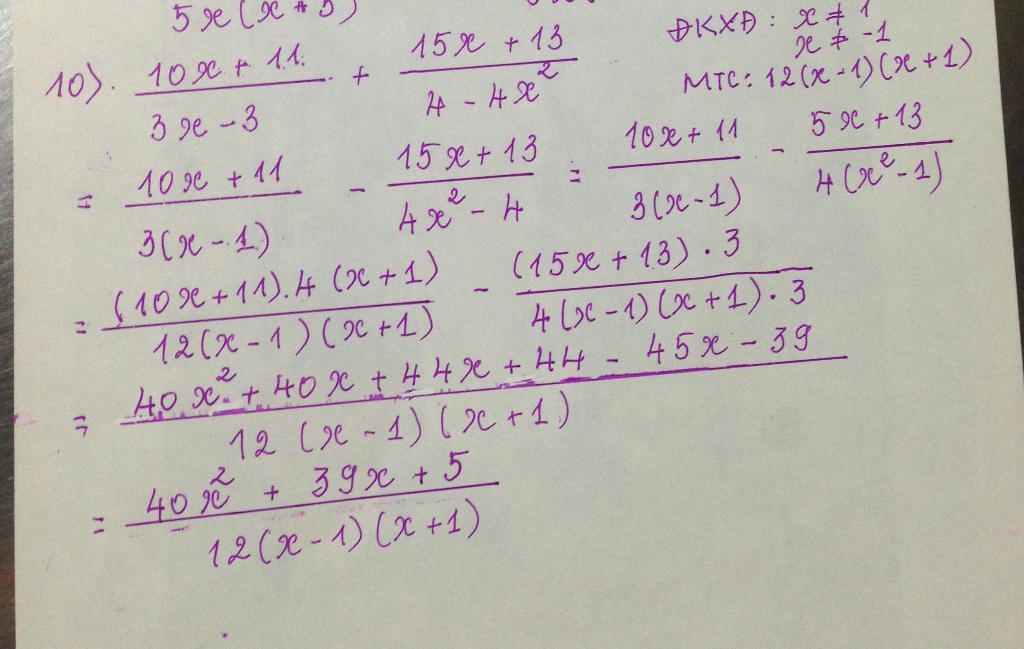 5x(x+5)
ĐKXĐ: x ≠ 1
x ≠ -1
MTC: 12(x-1)(x+1)
10). (10x + 11)/(3x - 3) + (15x + 13)/(4 - 4x²)
= (10x + 11)/(3(x - 1)) - (15x + 13)/(4x² - 4) = (10x + 11)/(3(x - 1)) - (5x + 13)/(4(x² - 1))
= ((10x + 11).4(x + 1))/(12(x - 1)(x + 1)) - ((15x + 13).3)/(4(x - 1)(x + 1).3)
= (40x² + 40x + 44x + 44 - 45x - 39)/(12(x - 1)(x + 1))
= (40x² + 39x + 5)/(12(x - 1)(x + 1))